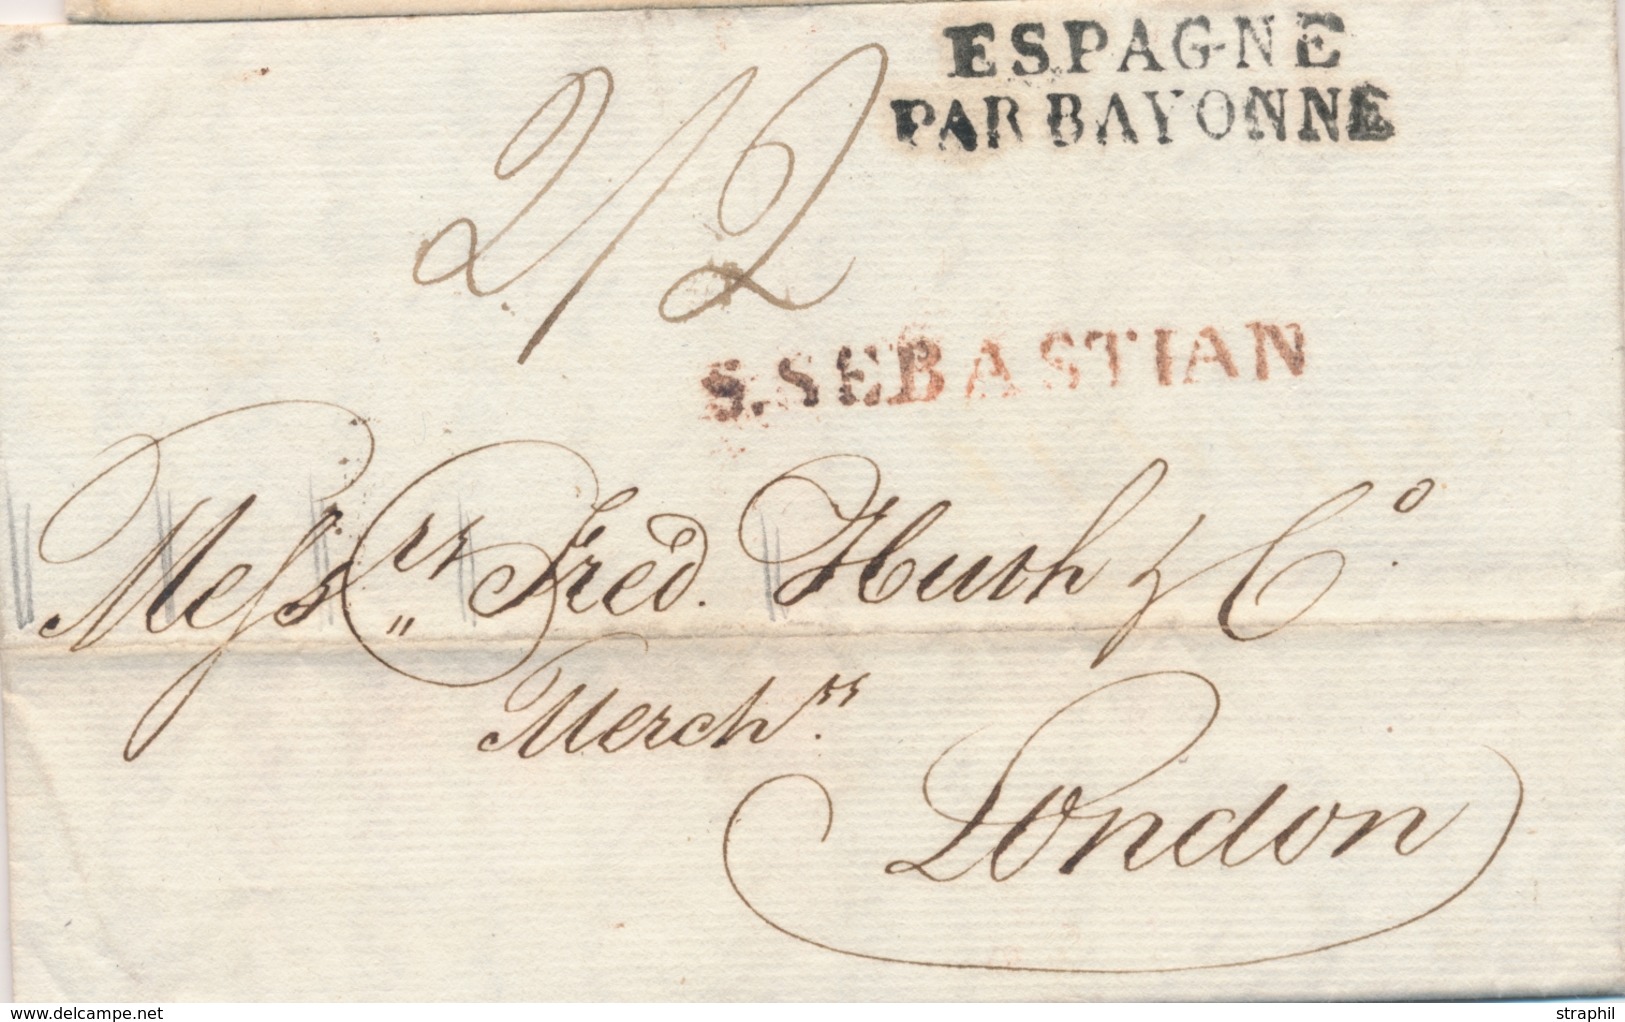 ESPAGNE
PAR BAYONNE
2/2
S.SEBASTIAN
Messrs Fred. Huth & Co.
Merchrs.
London
delcampe.net
straphil